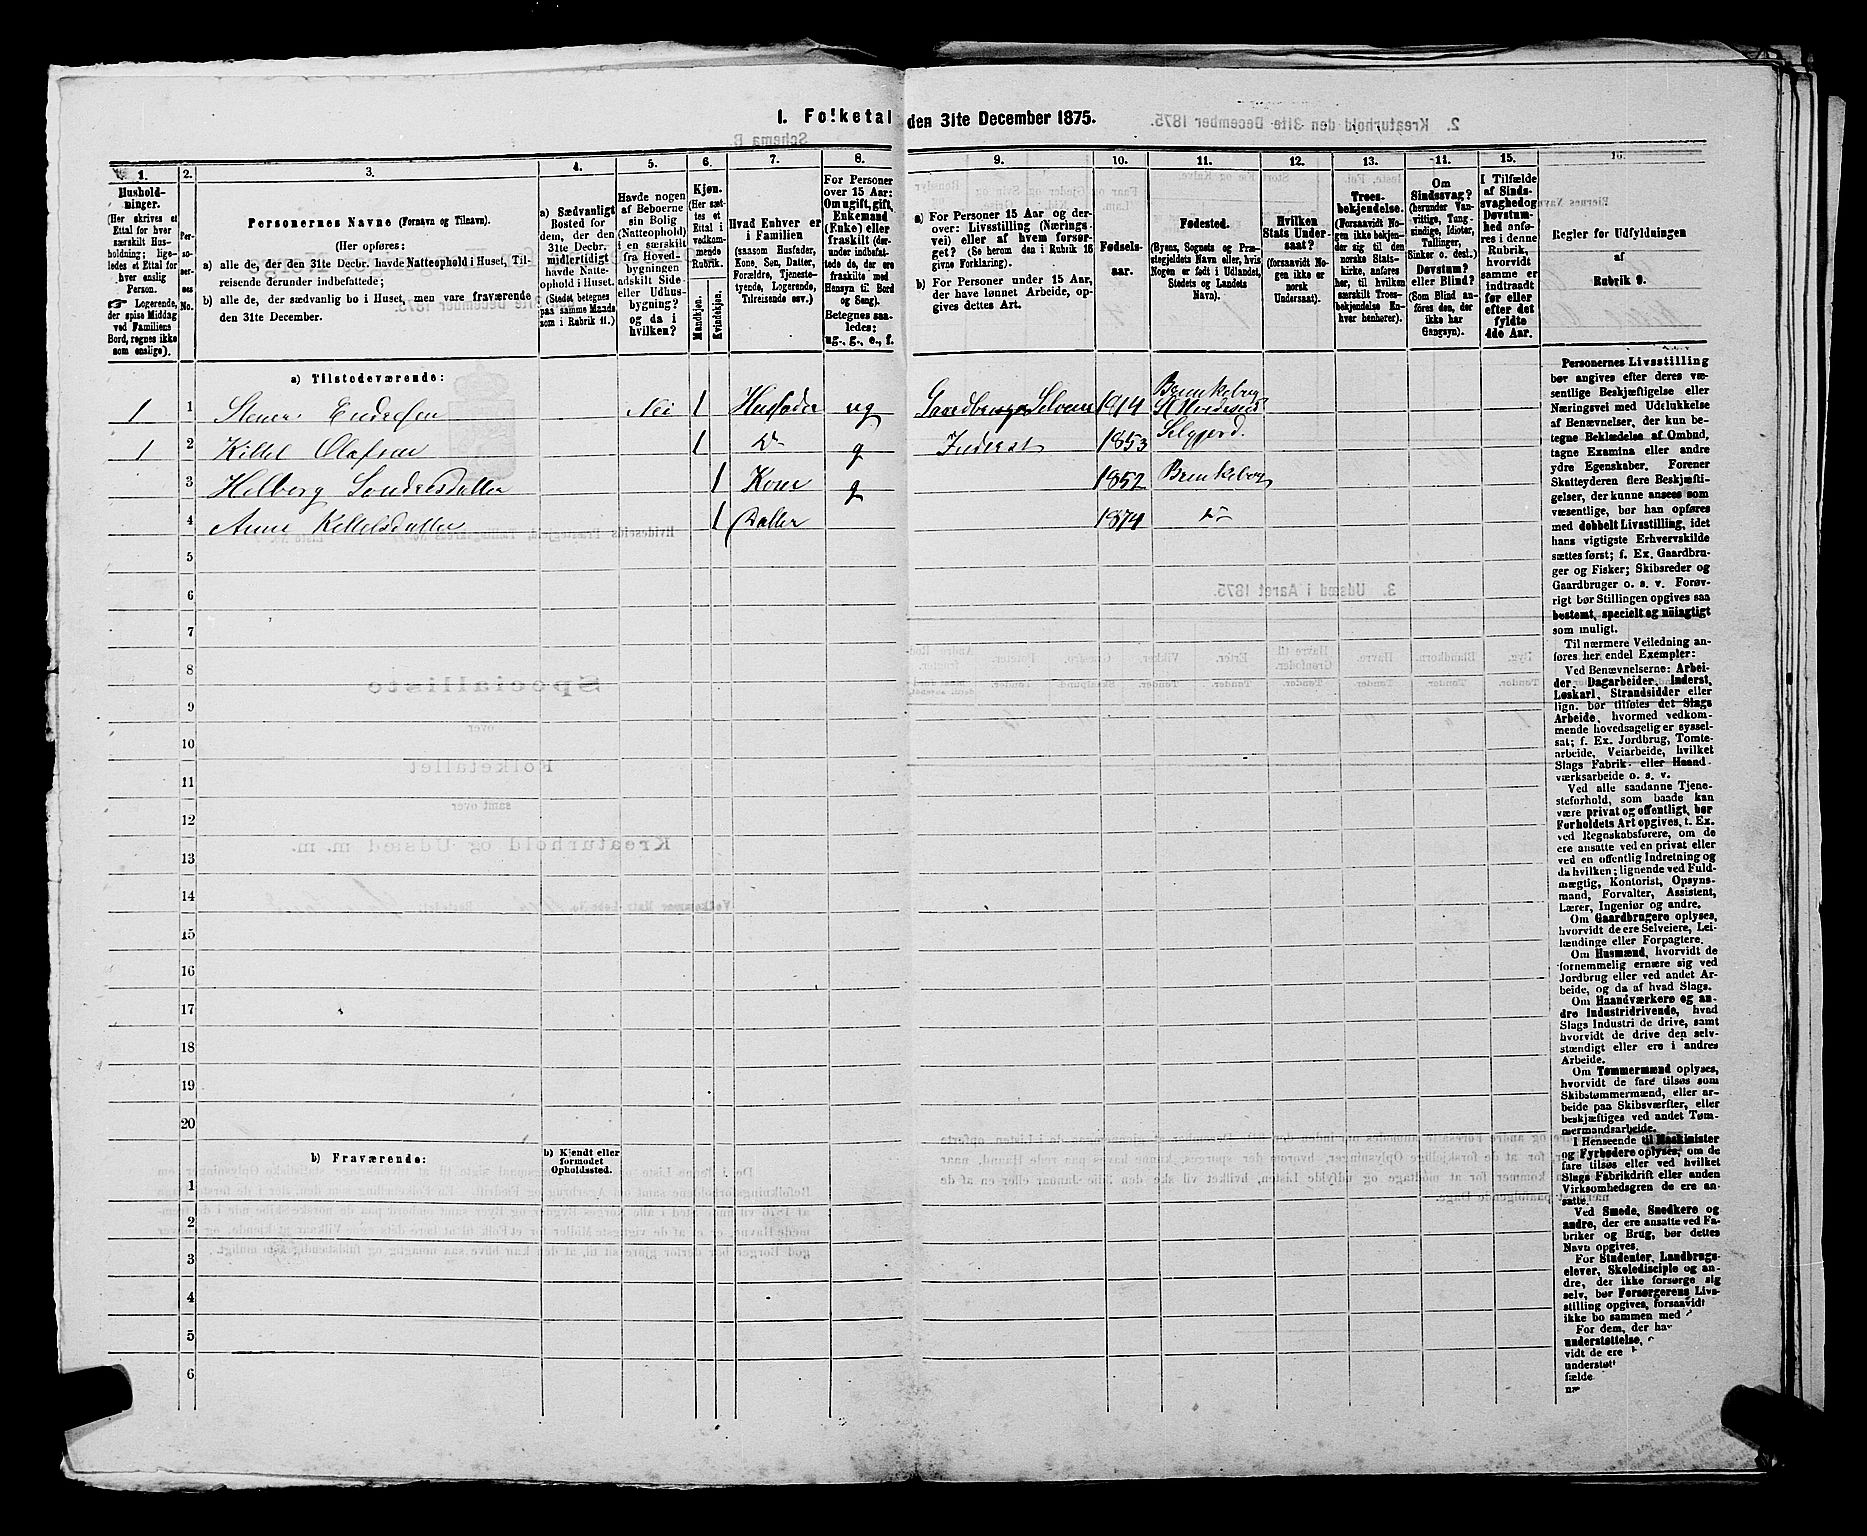 1. Folketal den 31te December 1875.
1.
2.
3.
4.
5.
6.
7.
8.
9.
10.
11.
12.
13.
14.
15.
16.
Hushold-
ninger.
(Her skrives et
Ettal for hver
særskilt Hus-
holdning; lige-
ledes et Ettal for
hver enslig
Person.
☞ Logerende,
der spise Middag
ved Familiens
Bord, regnes ikke
som enslige).
Per-
so-
ner-
nes
No.
Personernes Navne (Fornavn og Tilnavn).
(Her opføres:
a) alle de, der den 31te Decbr. havde Natteophold i Huset, Til-
reisende derunder indbefattede;
b) alle de, der sædvanlig bo i Huset, men vare fraværende
den 31te December.
a) Sædvanligt
Bosted for
dem, der den
31te Decbr.
midlertidigt
havde Natte-
ophold i Huset.
(Stedet betegnes
paa samme Maade
som i Rubrik 11.)
Havde nogen
af Beboerne
sin Bolig
(Natteophold)
i en særskilt
fra Hoved-
bygningen
adskilt Side-
eller Udhus-
bygning?
og da i
hvilken?
Kjøn.
(Her sæt-
tes et
Ettal i
vedkom-
mende
Rubrik.
Mandkjøn.
Kvindekjøn.
Hvad Enhver er
i Familien
(saasom Husfader,
Kone, Søn, Datter,
Forældre, Tjeneste-
tyende, Logerende,
Tilreisende osv.)
For Personer
over 15 Aar:
Om ugift, gift,
Enkemand
(Enke) eller
fraskilt (der-
under indbefat-
tede de, der ere
fraskilte med
Hensyn til Bord
og Seng).
Betegnes saa-
ledes:
ug., g., e., f.
a) For Personer 15 Aar og der-
over: Livsstilling (Nærings-
vei) eller af hvem forsør-
get? (Se herom den i Rubrik 16
givne Forklaring).
b) For Personer under 15 Aar,
der have lønnet Arbeide, op-
gives dettes Art.
Fødsels-
aar.
Fødested.
(Byens, Sognets og Præ-
stegjeldets Navn eller, hvis
Nogen er født i Udlandet,
Stedets og Landets
Navn).
Hvilken
Stats Under-
saat?
(forsaavidt No-
gen ikke er
norsk
Undersaat).
Troes-
bekjendelse.
(Forsaavidt No-
gen ikke bekjen-
der sig til den
norske Stats-
kirke, anføres
her, til hvilken
særskilt Troes-
bekjendelse En-
hver henhører).
Om
Sindssvag?
(herunder Van-
vittige, Tung-
sindige, Idioter,
Tullinger,
Sinker o. desl.)
Døvstum?
eller Blind?
(Som Blind an-
føres den, der
ikke har
Gangsyn).
I Tilfælde
af Sinds-
svaghed og
Døvstum-
hed anfø-
res i denne
Rubrik,
hvorvidt
samme er
indtraadt
før eller
efter det
fyldte
4de Aar.
Regler for Udfyldningen
af
Rubrik 9.
a) Tilstedeværende:
1 1 Stener Endresen Nei 1 Husfader ug Gaardbruger Selveier 1914 Brunkeberg
1 2 Kittel Olafsen 1 Do g Inderst 1853 Selgjord.
3 Helberg Sondresdatter 1 Kone g 1852 Brunkeberg
4 Anne Kittelsdatter 1 Datter 1874 do
5
6
7
8
9
10
11
12
13
14
15
16
17
18
19
20
b) Fraværende:
b) Kjendt eller
formodet
Opholdssted.
1
2
3
4
5
6
Personernes Livsstilling
bør angives efter deres væ-
sentlige Beskjæftigelse eller
Næringsvei med Udelukkelse
af Benævnelser, der kun be-
tegne Beklædelse af Ombud,
tagne Examina eller andre
ydre Egenskaber. Forener
Skatteyderen flere Beskjæfti-
gelser, der kunne ansees som
væsentlige, bør han opføres
med dobbelt Livsstilling, idet
hans vigtigste Erhvervskilde
sættes først; f. Ex. Gaardbru-
ger og Fisker; Skibsreder og
Gaardbruger o. s. v. Forøv-
rigt bør Stillingen opgives saa
bestemt, specielt og nøiagtigt
som muligt.
Til nærmere Veiledning an-
føres her endel Exempler:
Ved Benævnelserne: Arbei-
der, Dagarbeider, Inderst,
Løskarl, Strandsidder eller
lign. bør tilføies det Slags
Arbeide, hvormed vedkom-
mende hovedsagelig er syssel-
sat; f. Ex. Jordbrug, Tomte-
arbeide, Veiarbeide, hvilket
Slags Fabrik- eller Haand-
værksarbeide o. s. v.
Ved alle saadanne Tjene-
steforhold, som baade kan
være privat og offentligt, bør
Forholdets Art opgives, t. Ex.
ved Regnskabsførere, om de
ere ansatte ved en privat eller
ved en offentlig Indretning og
da hvilken; lignende ved Fuld-
mægtig, Kontorist, Opsyns-
mand, Forvalter, Assistent,
Lærer, Ingeniør og andre.
Om Gaardbrugere oplyses,
hvorvidt de ere Selveiere, Lei-
lændinge eller Forpagtere.
Om Husmænd, hvorvidt de
fornemmelig ernære sig ved
Jordbrug eller ved andet Ar-
beide, og da af hvad Slags.
Om Haandværkere og an-
dre Industridrivende, hvad
Slags Industri de drive, samt
hvorvidt de drive den selv-
stændigt eller ere i andres
Arbeide.
Om Tømmermænd oplyses,
hvorvidt de fare tilsøs som
Skibstømmermænd, eller ar-
beide paa Skibsværfter, eller
beskjæftiges ved andet Tøm-
mermandsarbeide.
I Henseende til Maskinister
og Fyrbødere oplyses, om de
fare tilsøs eller ved hvilket
Slags Fabrikdrift eller anden
Virksomhedsgren de ere an-
satte.
Ved Smede, Snedkere og
andre, der ere ansatte ved Fa-
briker og Brug, bør dettes
Navn opgives.
For Studenter, Landbrugs-
elever, Skoledisciple og an-
dre, der ikke forsørge sig
selv, bør Forsørgerens Livs-
stilling opgives, forsaavidt
ikke bo sammen med
For dem, der hav
understøttelse,
vidt de ere
understøt
fælde
næ